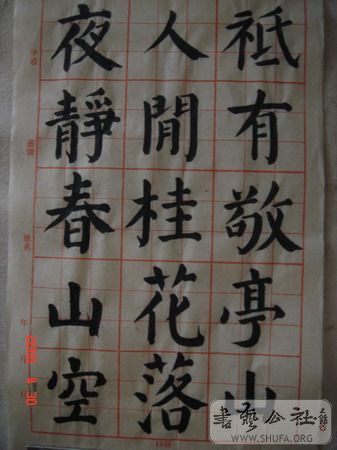 祗有敬亭山
人閒桂花落
夜靜春山空
姓名
年 月 日
書藝公社
WWW.SHUFA.ORG